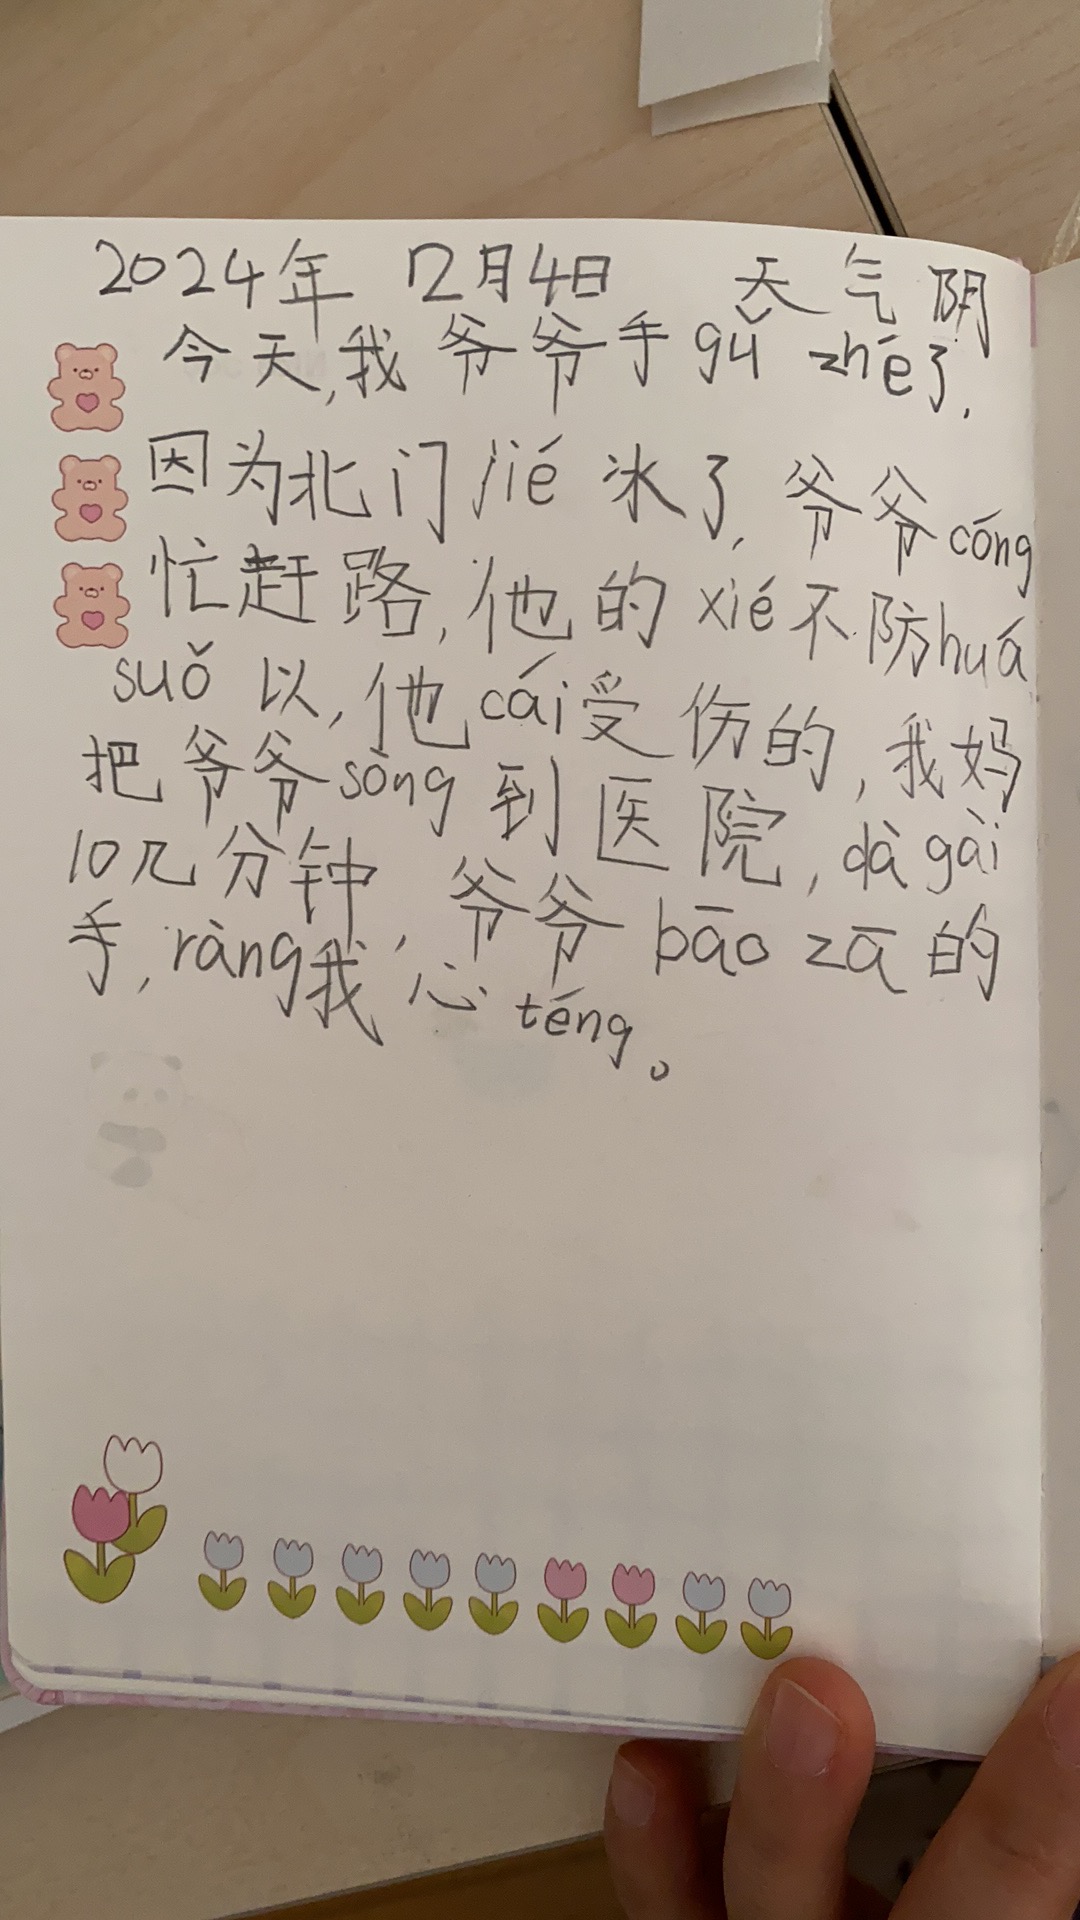 2024年 12月4日 天气阴
今天,我爷爷手gǔ zhé了,
因为北门jié冰了,爷爷cóng
忙赶路,他的xié不防huá
suǒ以,他cái受伤的,我妈
把爷爷sòng到医院,dà gài
10几分钟,爷爷bāo zā的
手,ràng我心téng。